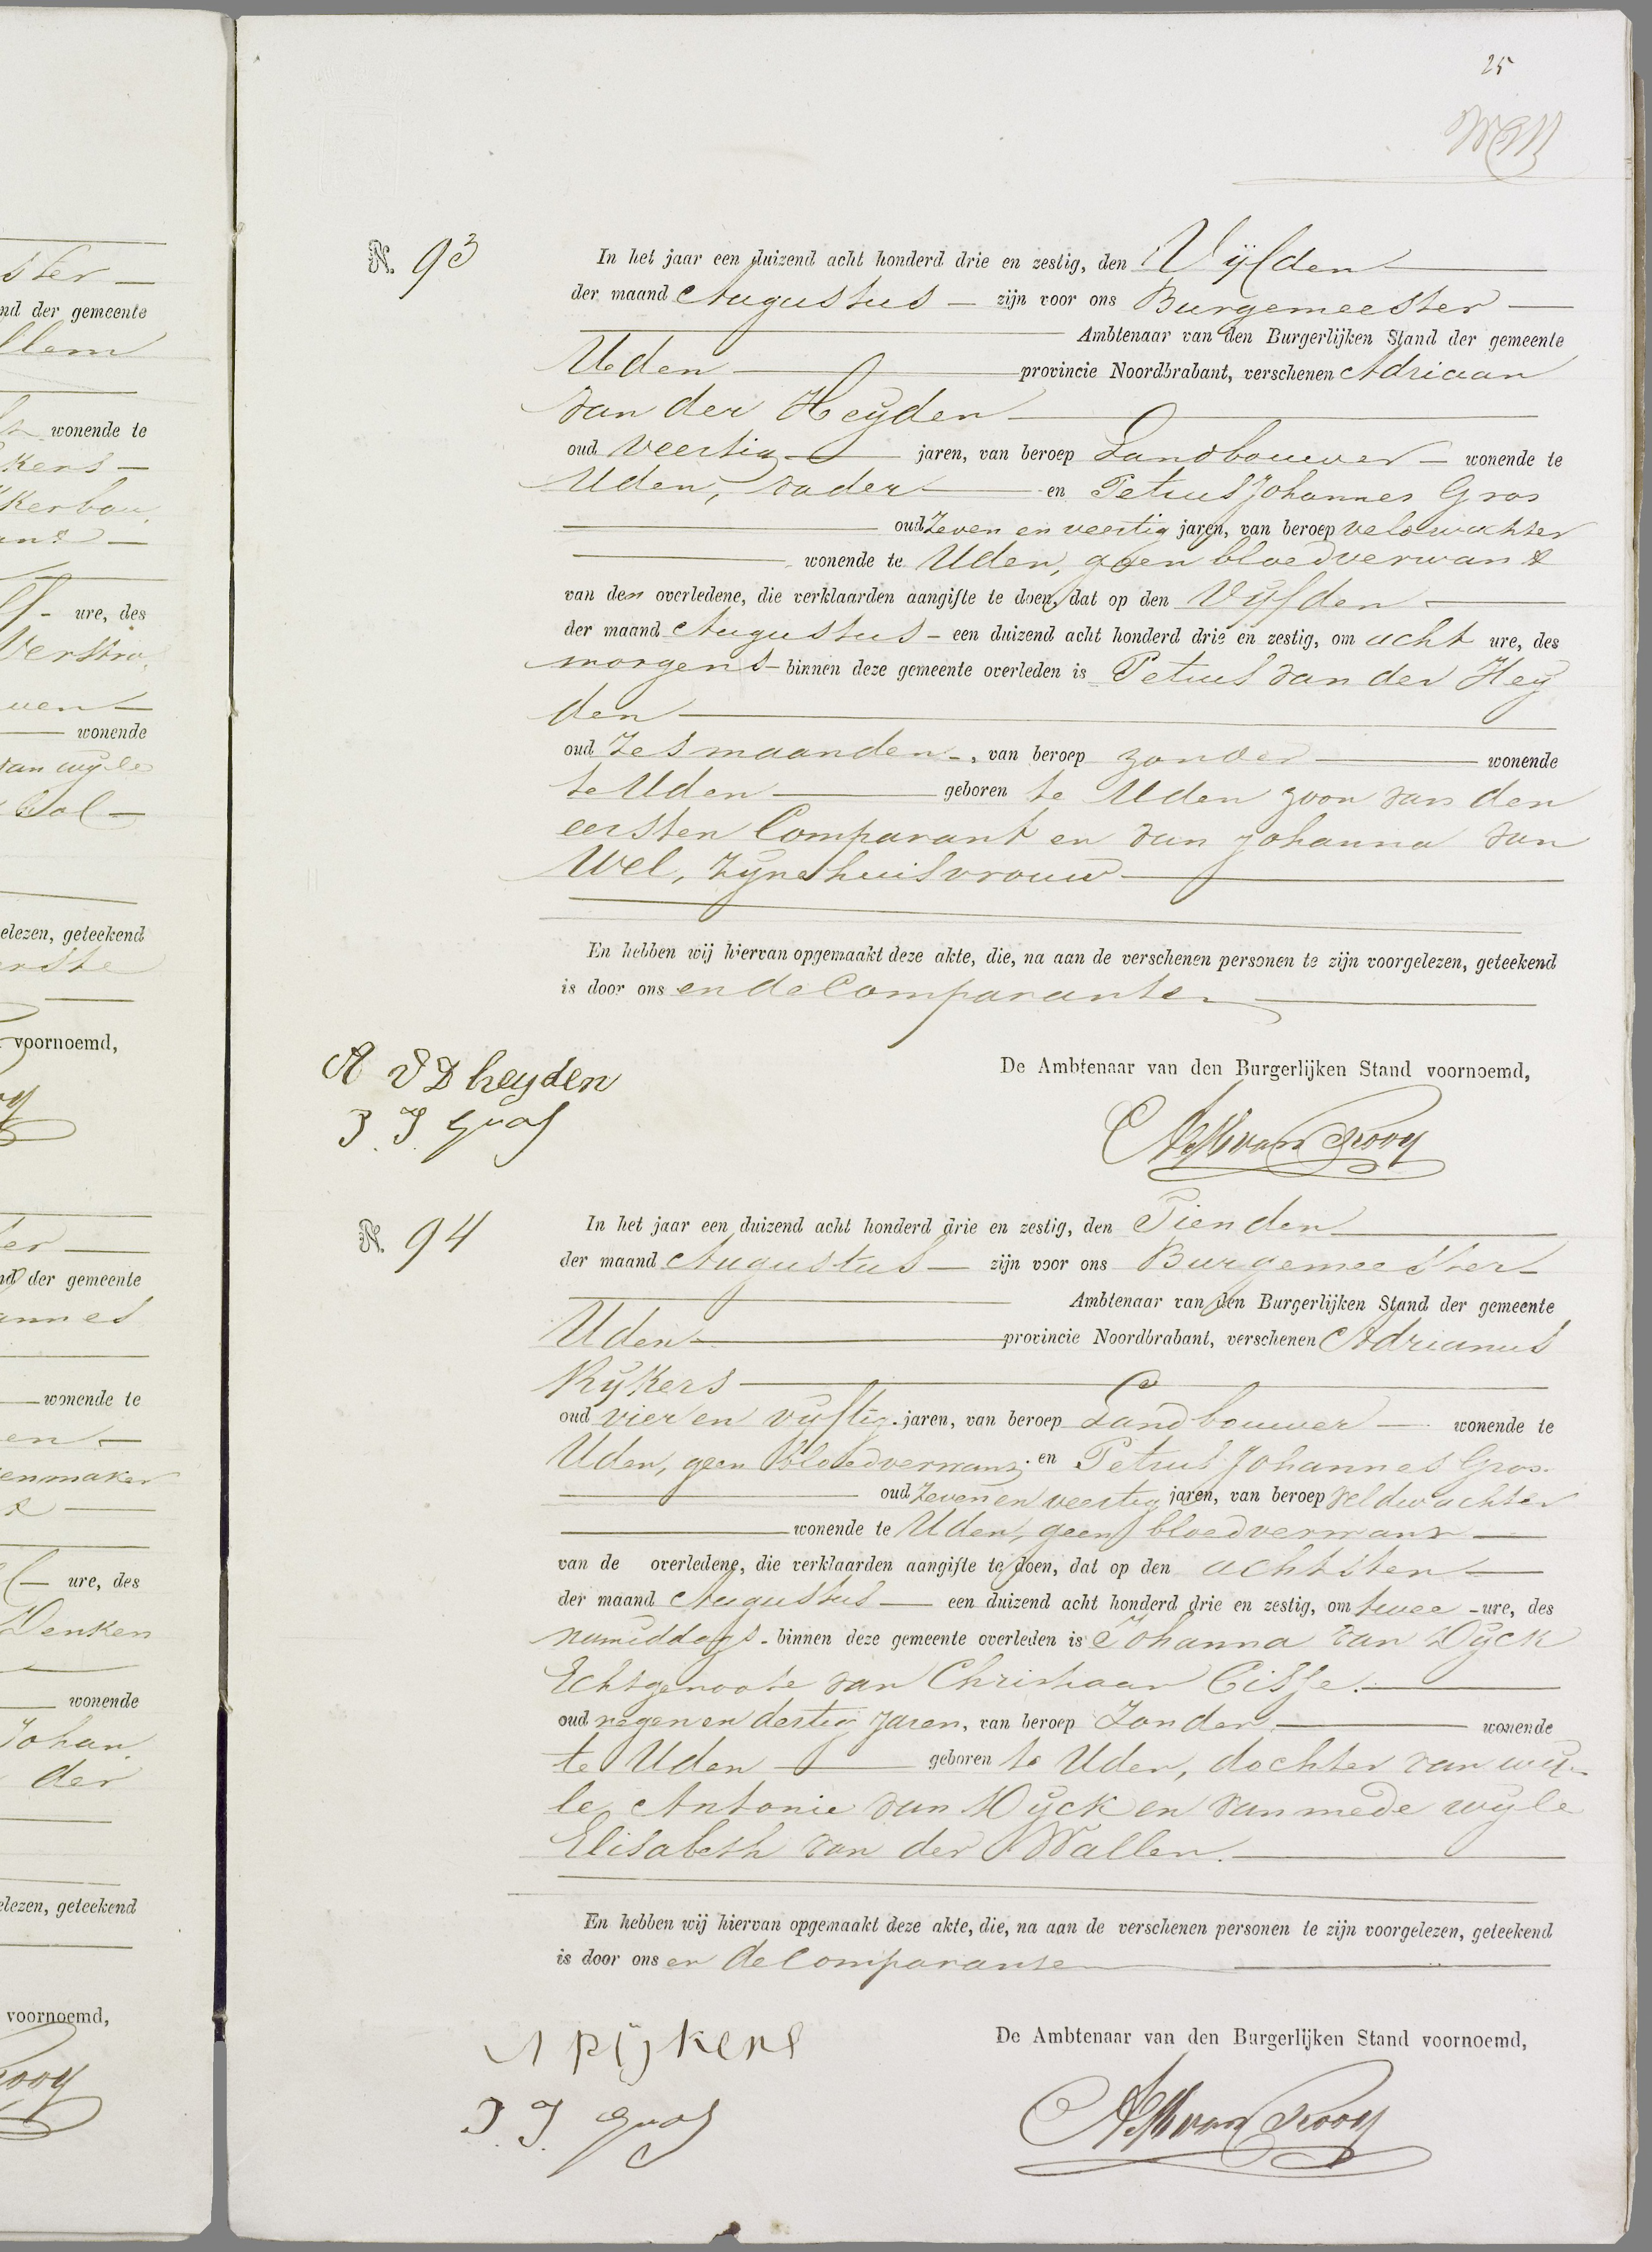 25
N. 93
In het jaar een duizend acht honderd drie en zestig, den Vijfden
der maand Augustus zijn voor ons Burgemeester
Ambtenaar van den Burgerlijken Stand der gemeente
Uden provincie Noordbrabant, verschenen Adriaan
van der Heyden
oud veertig jaren, van beroep Landbouwer wonende te
Uden, vader en Petrus Johannes Gros
oud Zeven en veertig jaren, van beroep veldwachter
wonende te Uden, geen bloedverwant
van den overledene, die verklaarden aangifte te doen, dat op den Vijfden
der maand Augustus een duizend acht honderd drie en zestig, om acht ure, des
morgens binnen deze gemeente overleden is Petrus van der Hey
den
oud Zes maanden, van beroep zonder wonende
te Uden geboren te Uden zoon van den
eersten Comparant en van Johanna van
Wel, zyne huisvrouw
En hebben wij hiervan opgemaakt deze akte, die, na aan de verschenen personen te zijn voorgelezen, geteekend
is door ons en de Comparanten
De Ambtenaar van den Burgerlijken Stand voornoemd,
A V D heyden
P. J. Gros
N. 94
In het jaar een duizend acht honderd drie en zestig, den Tienden
der maand Augustus zijn voor ons Burgemeester
Ambtenaar van den Burgerlijken Stand der gemeente
Uden provincie Noordbrabant, verschenen Adrianus
Rijkers
oud vier en vijftig jaren, van beroep Landbouwer wonende te
Uden, geen bloedverwant en Petrus Johannes Gros
oud Zeven en veertig jaren, van beroep veldwachter
wonende te Uden, geen bloedverwant
van de overledene, die verklaarden aangifte te doen, dat op den achtsten
der maand Augustus een duizend acht honderd drie en zestig, om twee ure, des
namiddags binnen deze gemeente overleden is Johanna van Dyck
Echtgenoote van Christiaan Cisse.
oud negen en dertig Jaren, van beroep Zonder wonende
te Uden geboren te Uden, dochter van wy-
le Antonie van Dyck en van mede wyle
Elisabeth van der Wallen.
En hebben wij hiervan opgemaakt deze akte, die, na aan de verschenen personen te zijn voorgelezen, geteekend
is door ons en de Comparanten
De Ambtenaar van den Burgerlijken Stand voornoemd,
A rijkers
P. J. Gros